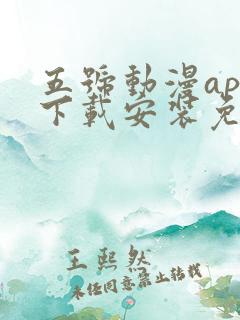 五號動漫ap
下載安裝免
王熙然
未经同意禁止转载